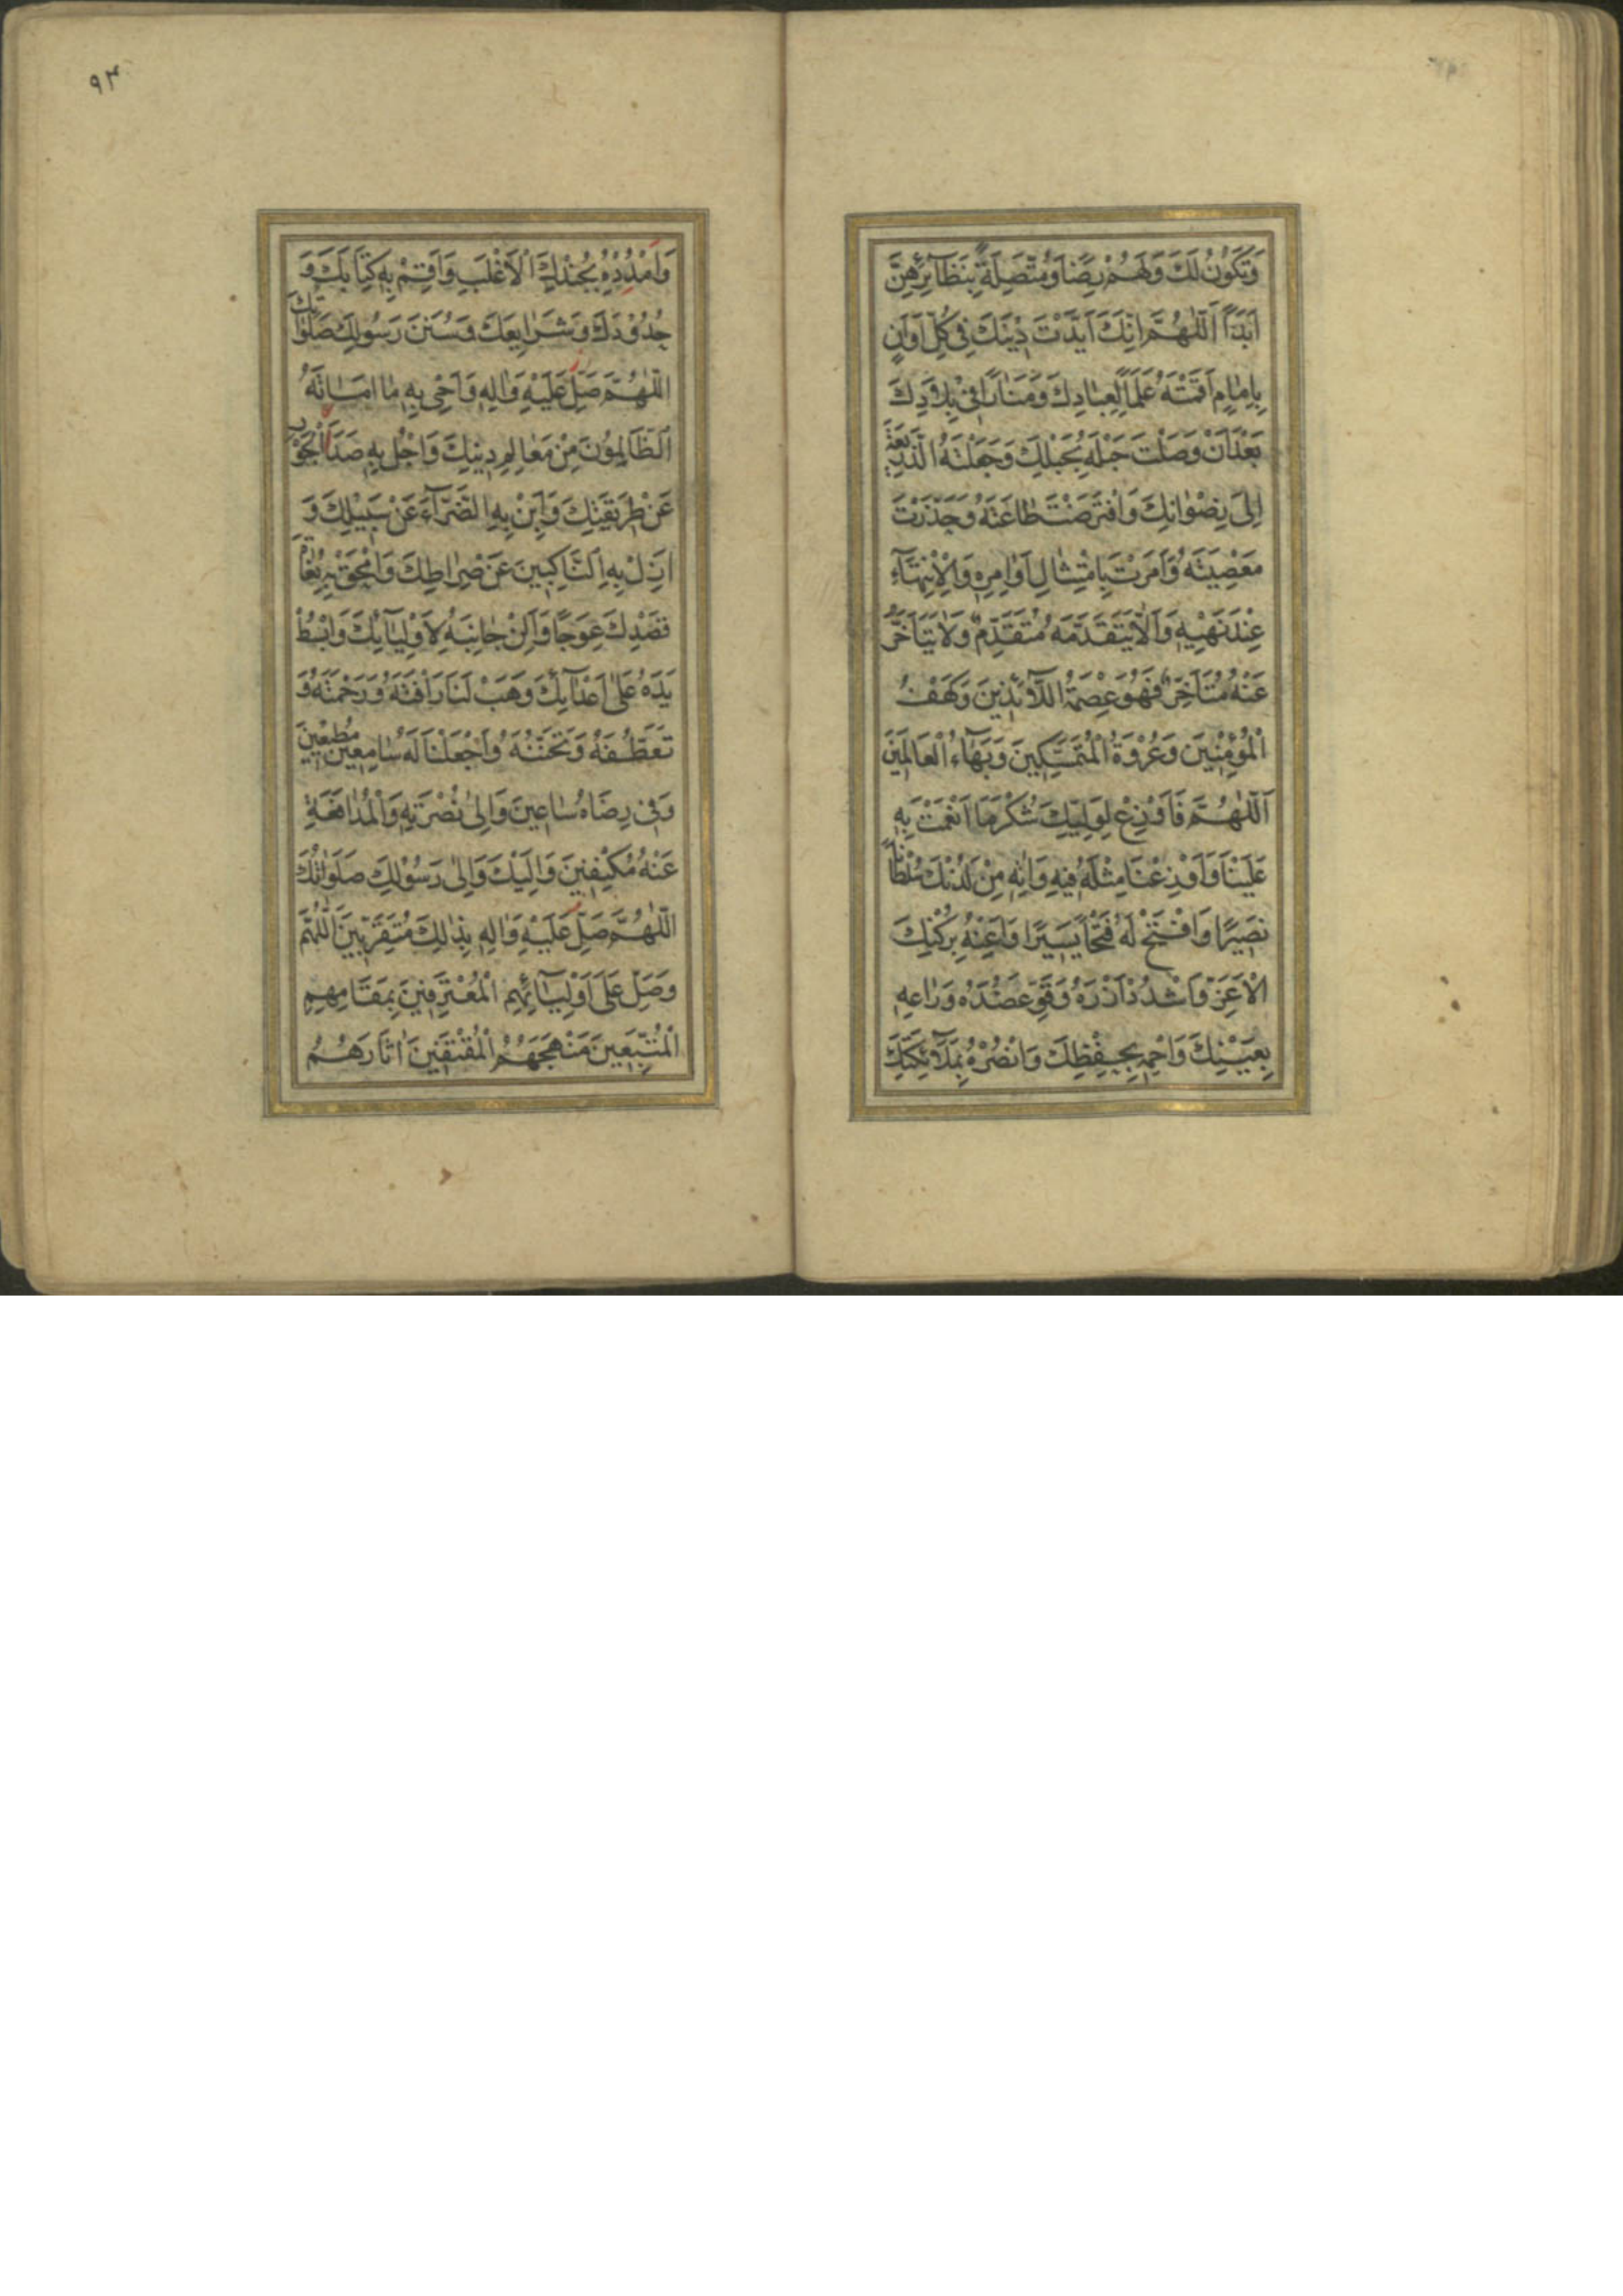 وَتَكُوْنُ لَكَ وَلَهُمْ رِضًا وَمُتَّصِلَةً بِنَظَآئِرِهِنَّ
اَبَدًا اَللّٰهُمَّ اِنَّكَ اَيَّدْتَ دِيْنَكَ فِى كُلِّ اَوَانٍ
بِاِمَامٍ اَقَمْتَهُ عَلَمًا لِعِبَادِكَ وَمَنَارًا فِىْ بِلَادِكَ
بَعْدَ اَنْ وَصَلْتَ حَبْلَهُ بِحَبْلِكَ وَجَعَلْتَهُ الذَّرِيْعَةَ
اِلٰى رِضْوَانِكَ وَافْتَرَضْتَ طَاعَتَهُ وَحَذَّرْتَ
مَعْصِيَتَهُ وَاَمَرْتَ بِامْتِثَالِ اَوَامِرِهِ وَالْاِنْتِهَآءِ
عِنْدَ نَهْيِهِ وَاَلَّا يَتَقَدَّمَهُ مُتَقَدِّمٌ وَلَا يَتَاَخَّرَ
عَنْهُ مُتَاَخِّرٌ فَهُوَ عِصْمَةُ اللَّآئِذِينَ وَكَهْفُ
الْمُؤْمِنِيْنَ وَعُرْوَةُ الْمُتَمَسِّكِينَ وَبَهَآءُ الْعَالَمِيْنَ
اَللّٰهُمَّ فَاَوْزِعْ لِوَلِيِّكَ شُكْرَ مَا اَنْعَمْتَ بِهِ
عَلَيْنَا وَاَوْزِعْنَا مِثْلَهُ فِيهِ وَاٰتِهِ مِنْ لَدُنْكَ سُلْطَانًا
نَصِيْرًا وَافْتَحْ لَهُ فَتْحًا يَسِيْرًا وَاَعِنْهُ بِرُكْنِكَ
الْاَعَزِّ وَاشْدُدْ اَزْرَهُ وَقَوِّ عَضُدَهُ وَرَاعِهِ
بِعَيْنِكَ وَاحْمِهِ بِحِفْظِكَ وَانْصُرْهُ بِمَلَآئِكَتِكَ
۹۳
وَامْدُدْهُ بِجُنْدِكَ الْاَغْلَبِ وَاَقِمْ بِهِ كِتَابَكَ وَ
حُدُوْدَكَ وَشَرَايِعَكَ وَسُنَنَ رَسُولِكَ صَلَوَاتُكَ
اللّٰهُمَّ صَلِّ عَلَيْهِ وَاٰلِهِ وَاَحْىِ بِهِ مَا اَمَاتَهُ
الظَّالِمُوْنَ مِنْ مَعَالِمِ دِينِكَ وَاجْلُ بِهِ صَدَاَ الْجَوْرِ
عَنْ طَرِيقَتِكَ وَاَبِنْ بِهِ الضَّرَّآءَ عَنْ سَبِيْلِكَ وَ
اَزِلْ بِهِ النَّاكِبِينَ عَنْ صِرَاطِكَ وَامْحَقْ بِهِ بُغَاةَ
قَصْدِكَ عِوَجًا وَاَلِنْ جَانِبَهُ لِاَوْلِيَآئِكَ وَابْسُطْ
يَدَهُ عَلٰى اَعْدَآئِكَ وَهَبْ لَنَا رَاْفَتَهُ وَرَحْمَتَهُ وَ
تَعَطُّفَهُ وَتَحَنُّنَهُ وَاجْعَلْنَا لَهُ سَامِعِيْنَ مُطِيْعِيْنَ
وَفِى رِضَاهُ سَاعِينَ وَاِلٰى نُصْرَتِهِ وَالْمُدَافَعَةِ
عَنْهُ مُكْنِفِيْنَ وَاِلَيْكَ وَاِلٰى رَسُوْلِكَ صَلَوَاتُكَ
اللّٰهُمَّ صَلِّ عَلَيْهِ وَاٰلِهِ بِذٰلِكَ مُتَقَرِّبِينَ اَللّٰهُمَّ
وَصَلِّ عَلٰى اَوْلِيَآئِهِمِ الْمُعْتَرِفِيْنَ بِمَقَامِهِمِ
الْمُتَّبِعِينَ مَنْهَجَهُمُ الْمُقْتَفِيْنَ اٰثَارَهُمُ